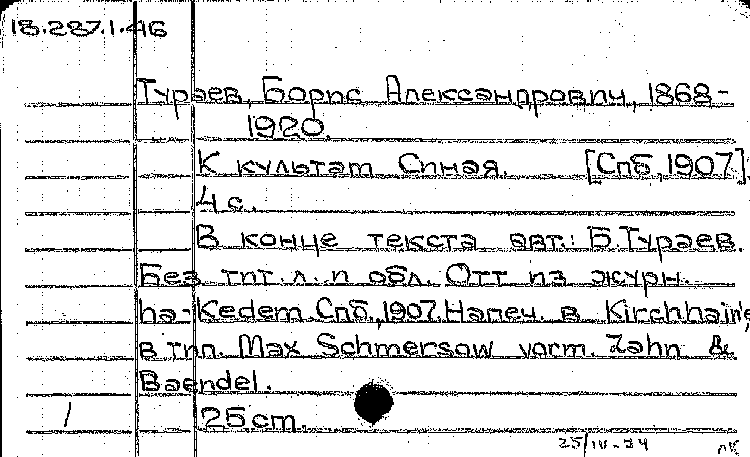 18.287.1.46
Тураев, Борис Александрович, 1868-
1920.
К культам Синая. [Спб, 1907].
4 с.
В конце текста авт.: Б. Тураев.
Без тит. л. и обл. Отт. из журн.
ha-Kedem. Спб., 1907. Напеч. в Kirchhain'е
в тип. Max Schmersow vorm. Zahn &
Baendel.
1 25 cm.
25/IV-74